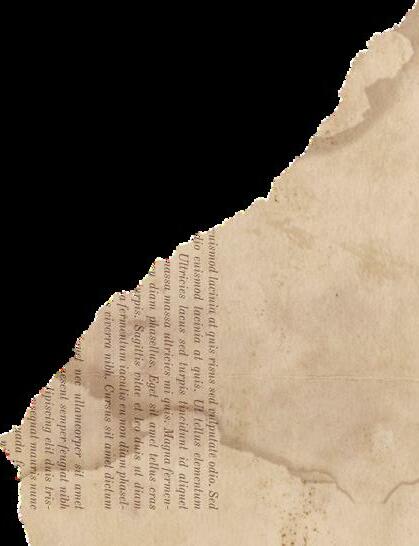 euismod lacinia at quis risus sed vulputate odio. Sed
odio euismod lacinia at quis. Ut tellus elementum
Ultricies lacus sed turpis tincidunt id aliquet
massa massa ultricies mi quis. Magna fermen-
diam phasellus. Eget sit amet tellus cras
turpis. Sagittis vitae et leo duis ut diam.
a fermentum iaculis eu non diam phasel-
viverra nibh. Cursus sit amet dictum
nec ullamcorper sit amet
semper feugiat nibh
elit duis tris-
mauris nunc